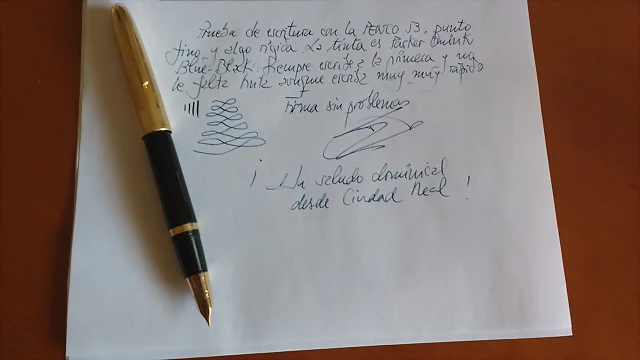 Prueba de escritura con la FENCO 53, punto
fino y algo rígida. La tinta es Parker Quink
Blue-Black. Siempre escribe a la primera y no
le falta tinta aunque escriba muy muy rápido
Firma sin problemas
¡Un saludo dominical
desde Ciudad Real!